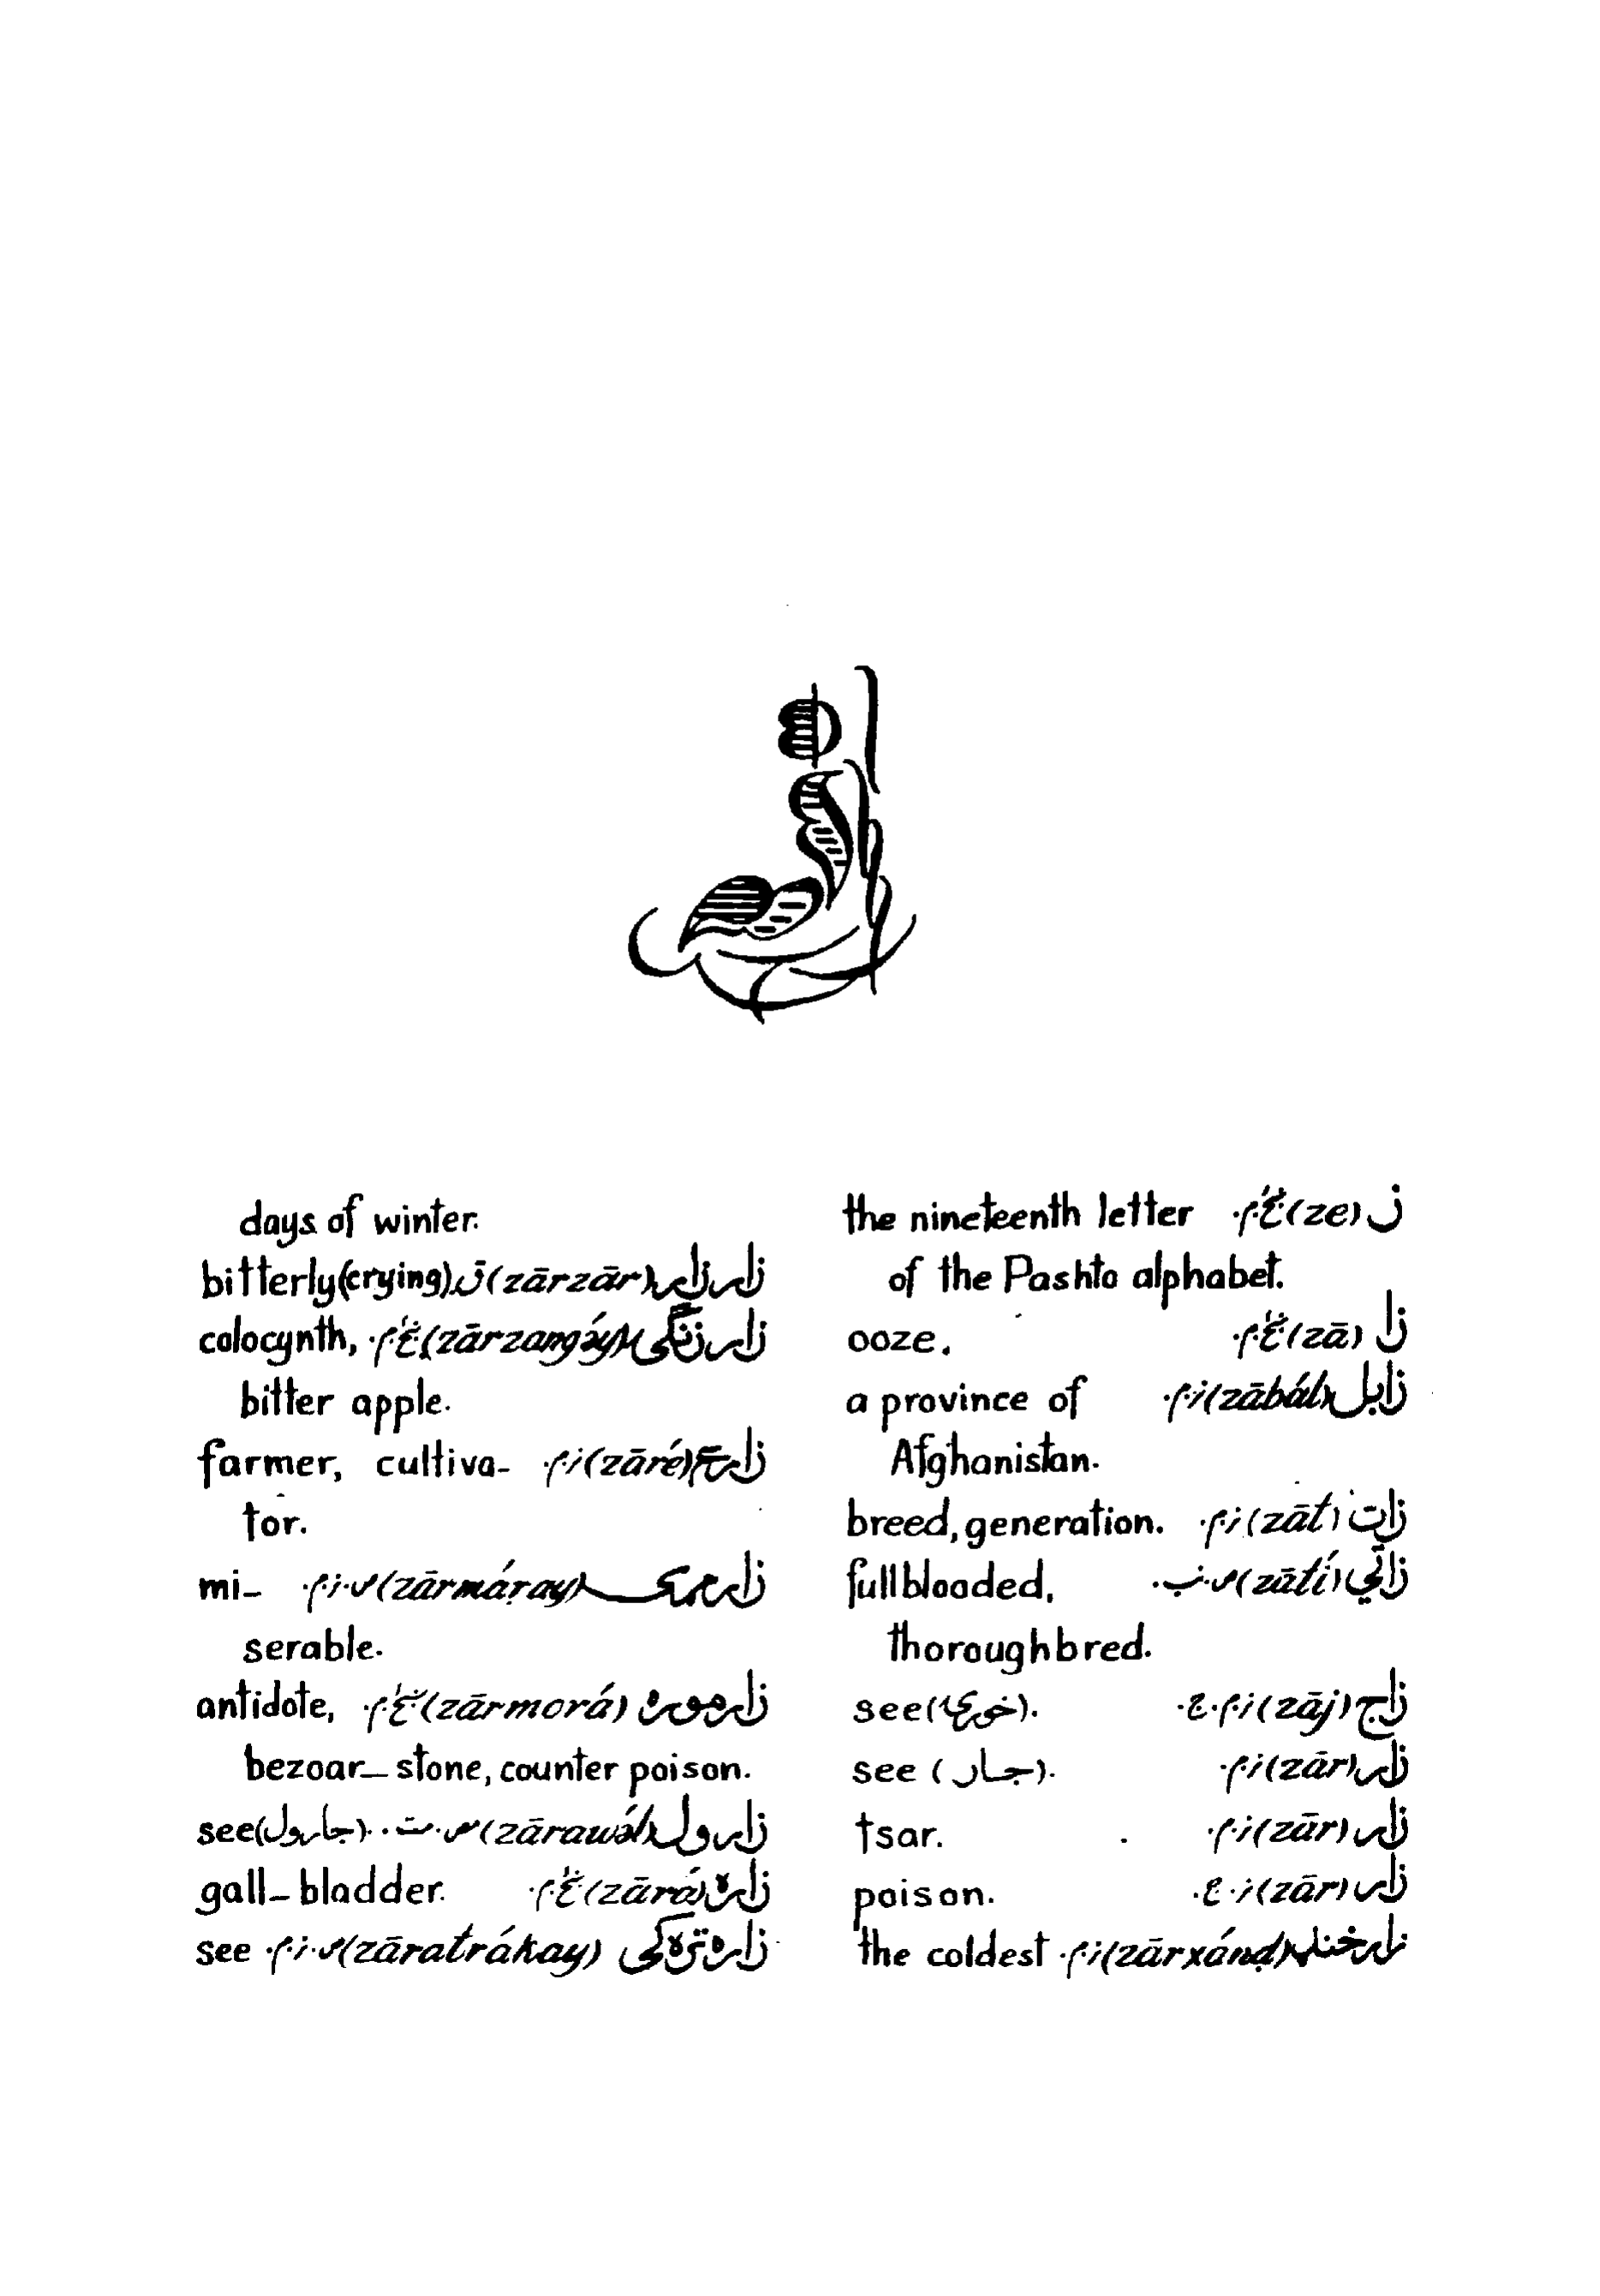 ز
ز (ze) the nineteenth letter
of the Pashto alphabet.
زا (zā) ooze.
زابل (zābál) a province of
Afghanistan.
زات (zāt) breed, generation.
زاتي (zātí) fullblooded,
thoroughbred.
زاج (zāj) see
زار (zār) see (جار).
زار (zār) tsar.
زار (zār) poison.
زارخنډ (zārxánḍ) the coldest
days of winter.
زارزار (zārzār) bitterly (crying).
زارزنګۍ (zārzangə́y) colocynth,
bitter apple.
زارع (zāré) farmer, cultiva-
tor.
(zārmáṛay) mi-
serable.
زارموره (zārmorá) antidote,
bezoar-stone, counter poison.
زارول (zārawə́l) see (جارول).
زاره (zārá) gall-bladder.
زاره ترکی (zāratrákay) see